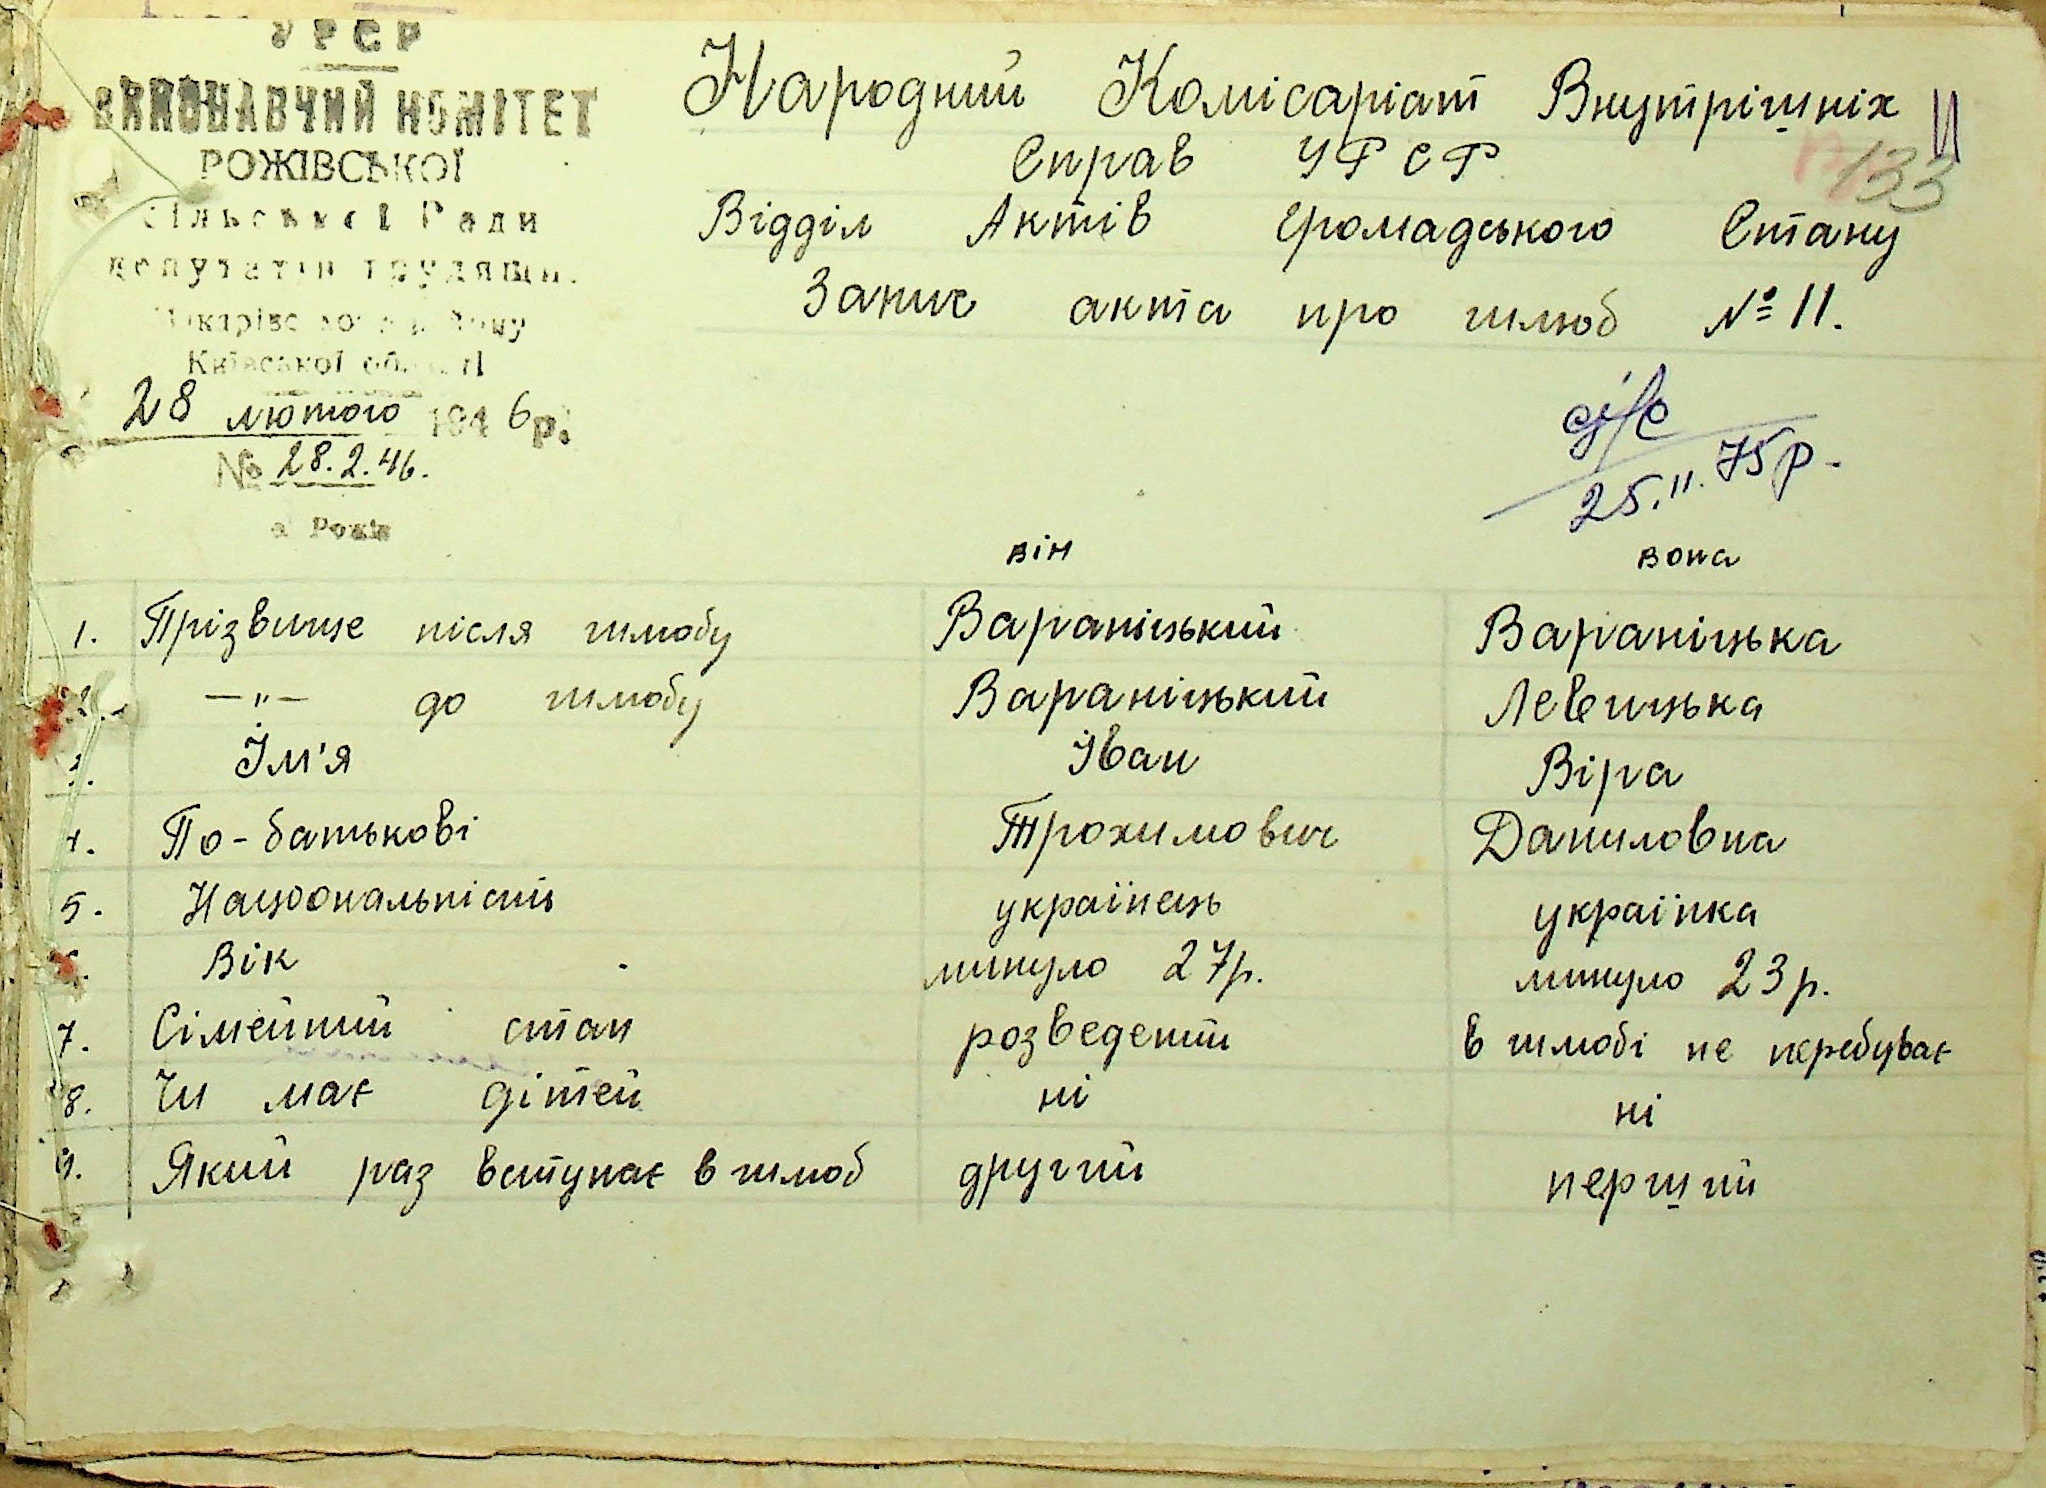 УРСР
ВИКОНАВЧИЙ КОМІТЕТ
РОЖІВСЬКОЇ
сільської Ради
депутатів трудящи.
Макарівського району
Київської області
28 лютого 1946р.
№ 28.2.46.
с. Рожів
Народний Комісаріат Внутрішніх
11
133
Справ УРСР
Відділ Актів Громадського Стану
Запис акта про шлюб № 11.
25.II.75р.
він вона
1. Прізвище після шлюбу Вараніцький Вараніцька
2. —"— до шлюбу Вараніцький Левицька
3. Їм'я Їван Віра
4. По-батькові Трохимович Даниловна
5. Національність українець українка
6. Вік минуло 27р. минуло 23р.
7. Сімейний стан розведений в шлюбі не перебуває
8. Чи має дітей ні ні
9. Який раз вступає в шлюб другий перший